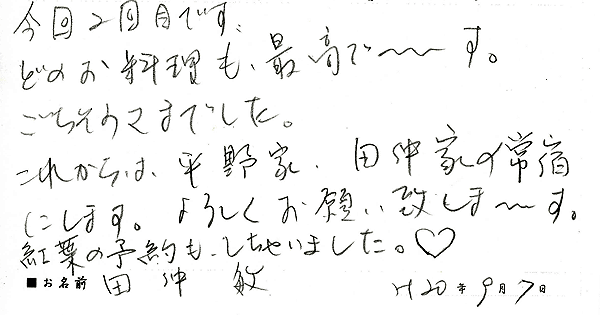 今回2回目です、
どのお料理も、最高で〜〜す。
ごちそうさまでした。
これからは、平野家、田仲家の常宿
にします。よろしくお願い致しま〜す。
紅葉の予約も、しちゃいました。♡
■お名前 田仲 敏 H20年9月7日